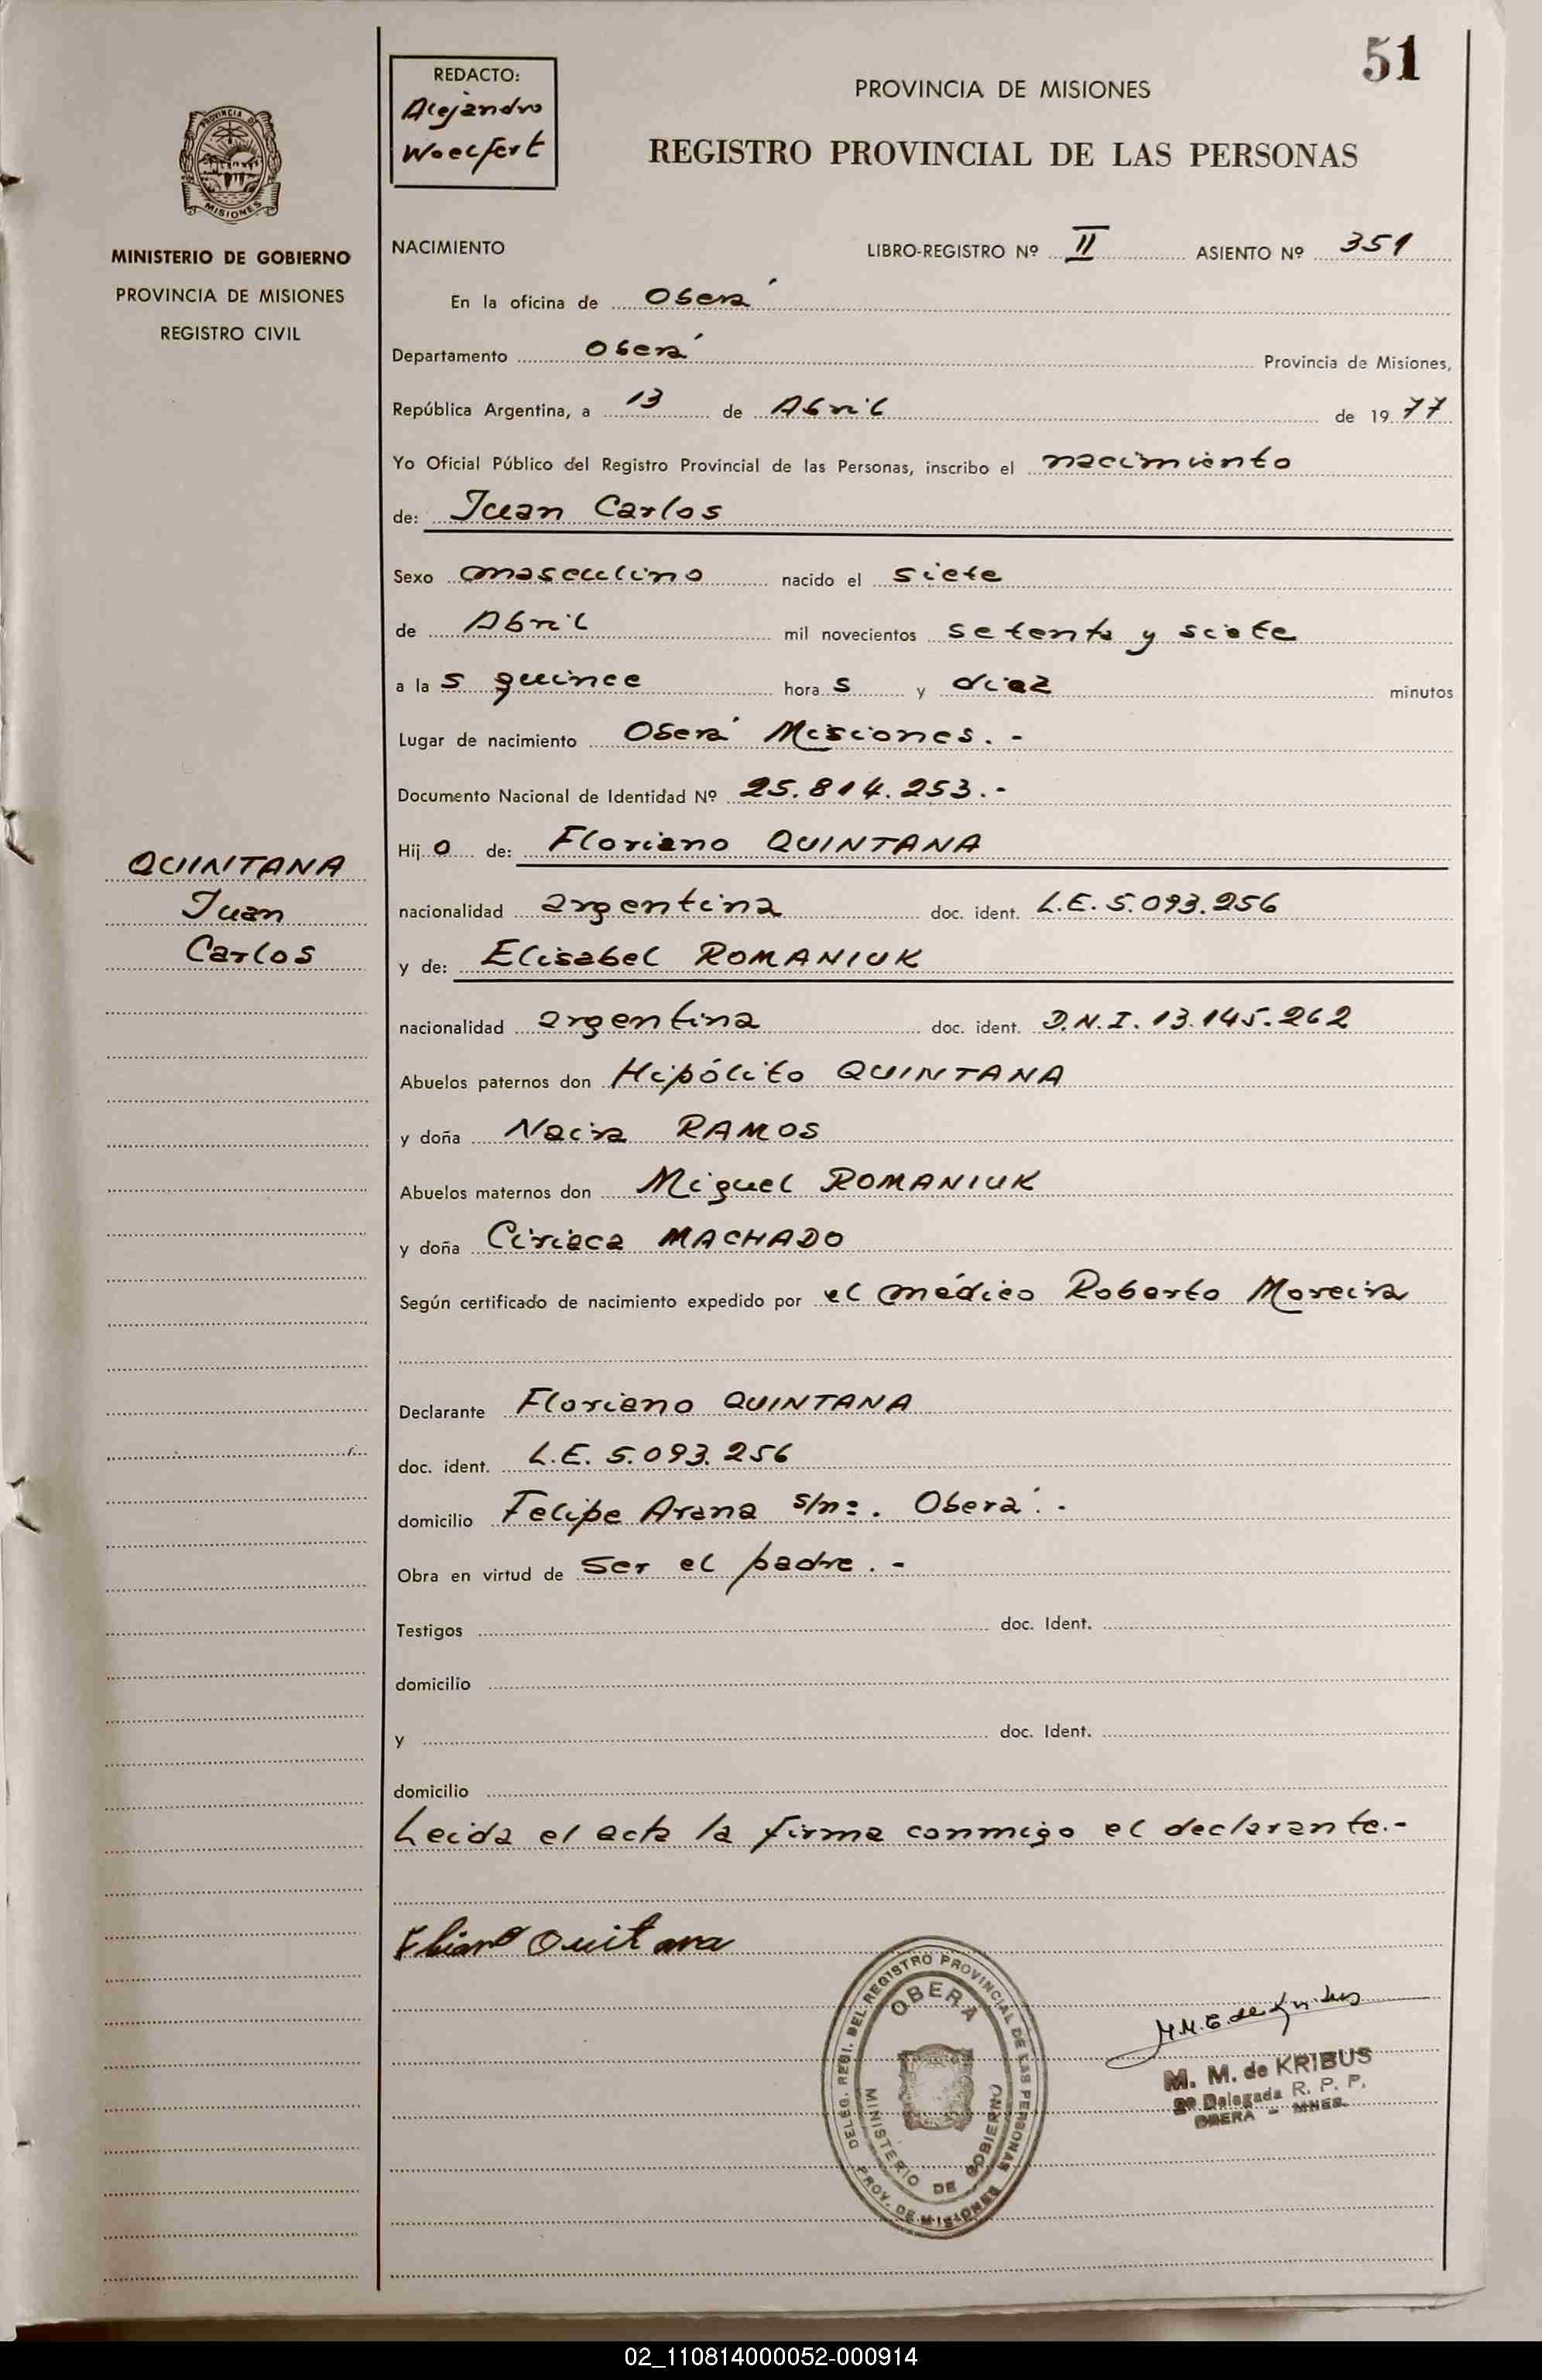 51
REDACTO:
Alejandro
Woelfert
PROVINCIA DE MISIONES
REGISTRO PROVINCIAL DE LAS PERSONAS
PROVINCIA DE
MISIONES
MINISTERIO DE GOBIERNO
PROVINCIA DE MISIONES
REGISTRO CIVIL
NACIMIENTO LIBRO-REGISTRO Nº II ASIENTO Nº 351
En la oficina de Oberá
Departamento Oberá Provincia de Misiones,
República Argentina, a 13 de Abril de 1977
Yo Oficial Público del Registro Provincial de las Personas, inscribo el nacimiento
de: Juan Carlos
Sexo masculino nacido el siete
de Abril mil novecientos setenta y siete
a las quince horas y diez minutos
Lugar de nacimiento Oberá Misiones.-
Documento Nacional de Identidad Nº 25.814.253.-
Hijo de: Floriano QUINTANA
QUINTANA
Juan
Carlos
nacionalidad argentina doc. ident. L.E. 5.093.256
y de: Elisabel ROMANIUK
nacionalidad argentina doc. ident. D.N.I. 13.145.262
Abuelos paternos don Hipólito QUINTANA
y doña Nacir RAMOS
Abuelos maternos don Miguel ROMANIUK
y doña Ciriaca MACHADO
Según certificado de nacimiento expedido por el médico Roberto Moreira
Declarante Floriano QUINTANA
doc. ident. L.E. 5.093.256
domicilio Felipe Arana s/n:. Oberá.-
Obra en virtud de ser el padre.-
Testigos doc. Ident.
domicilio
y doc. Ident.
domicilio
Leida el acta la firma conmigo el declarante.-
Quitana
DELEG. REGI. DEL REGISTRO PROVINCIAL DE LAS PERSONAS
OBERA
MINISTERIO DE GOBIERNO
PROV. DE MISIONES
M. M. de KRIBUS
2º Delegada R. P. P.
OBERA - MNES.
02_110814000052-000914